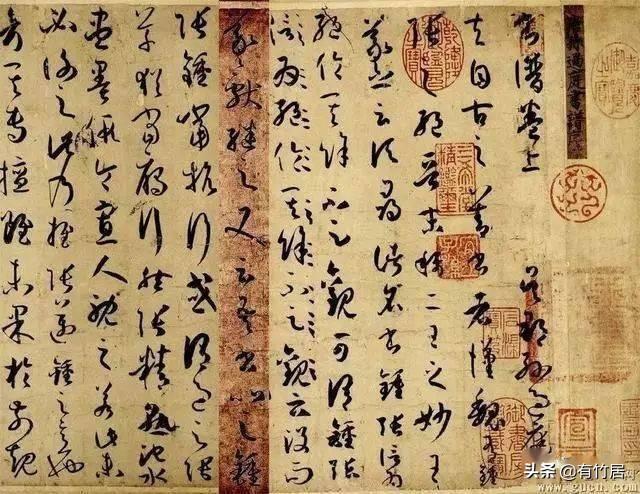 唐孫過庭書譜
書譜卷上 吳郡孫過庭
夫自古之善書者漢魏有鍾
張之絕晉末稱二王之妙王
羲之云頃尋諸名書鍾張信為
絕倫其餘不足觀可謂鍾張
絕倫其餘不足觀云沒而
羲獻繼之又云吾書比之鍾
張鍾當抗行或謂過之張
草猶當鴈行然張精熟池水
盡墨假令寡人耽之若此未
必謝之此乃推張邁鍾之意也
考其專擅雖未果於前規
头条 @有竹居
www.gucn.com